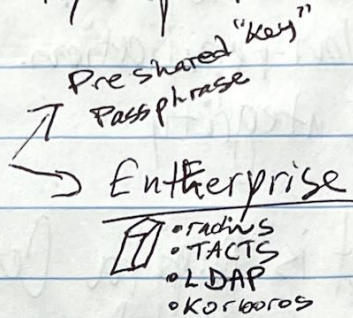 Preshared "Key"
Passphrase
Entherprise
• radius
• TACTS
• LDAP
• Korboros